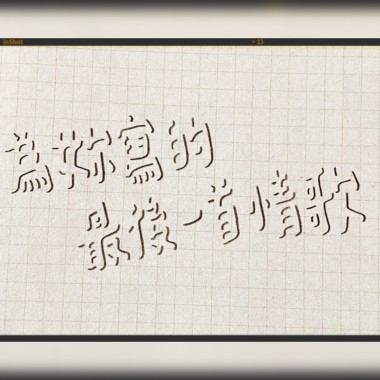 為你寫的
最後一首小情歌